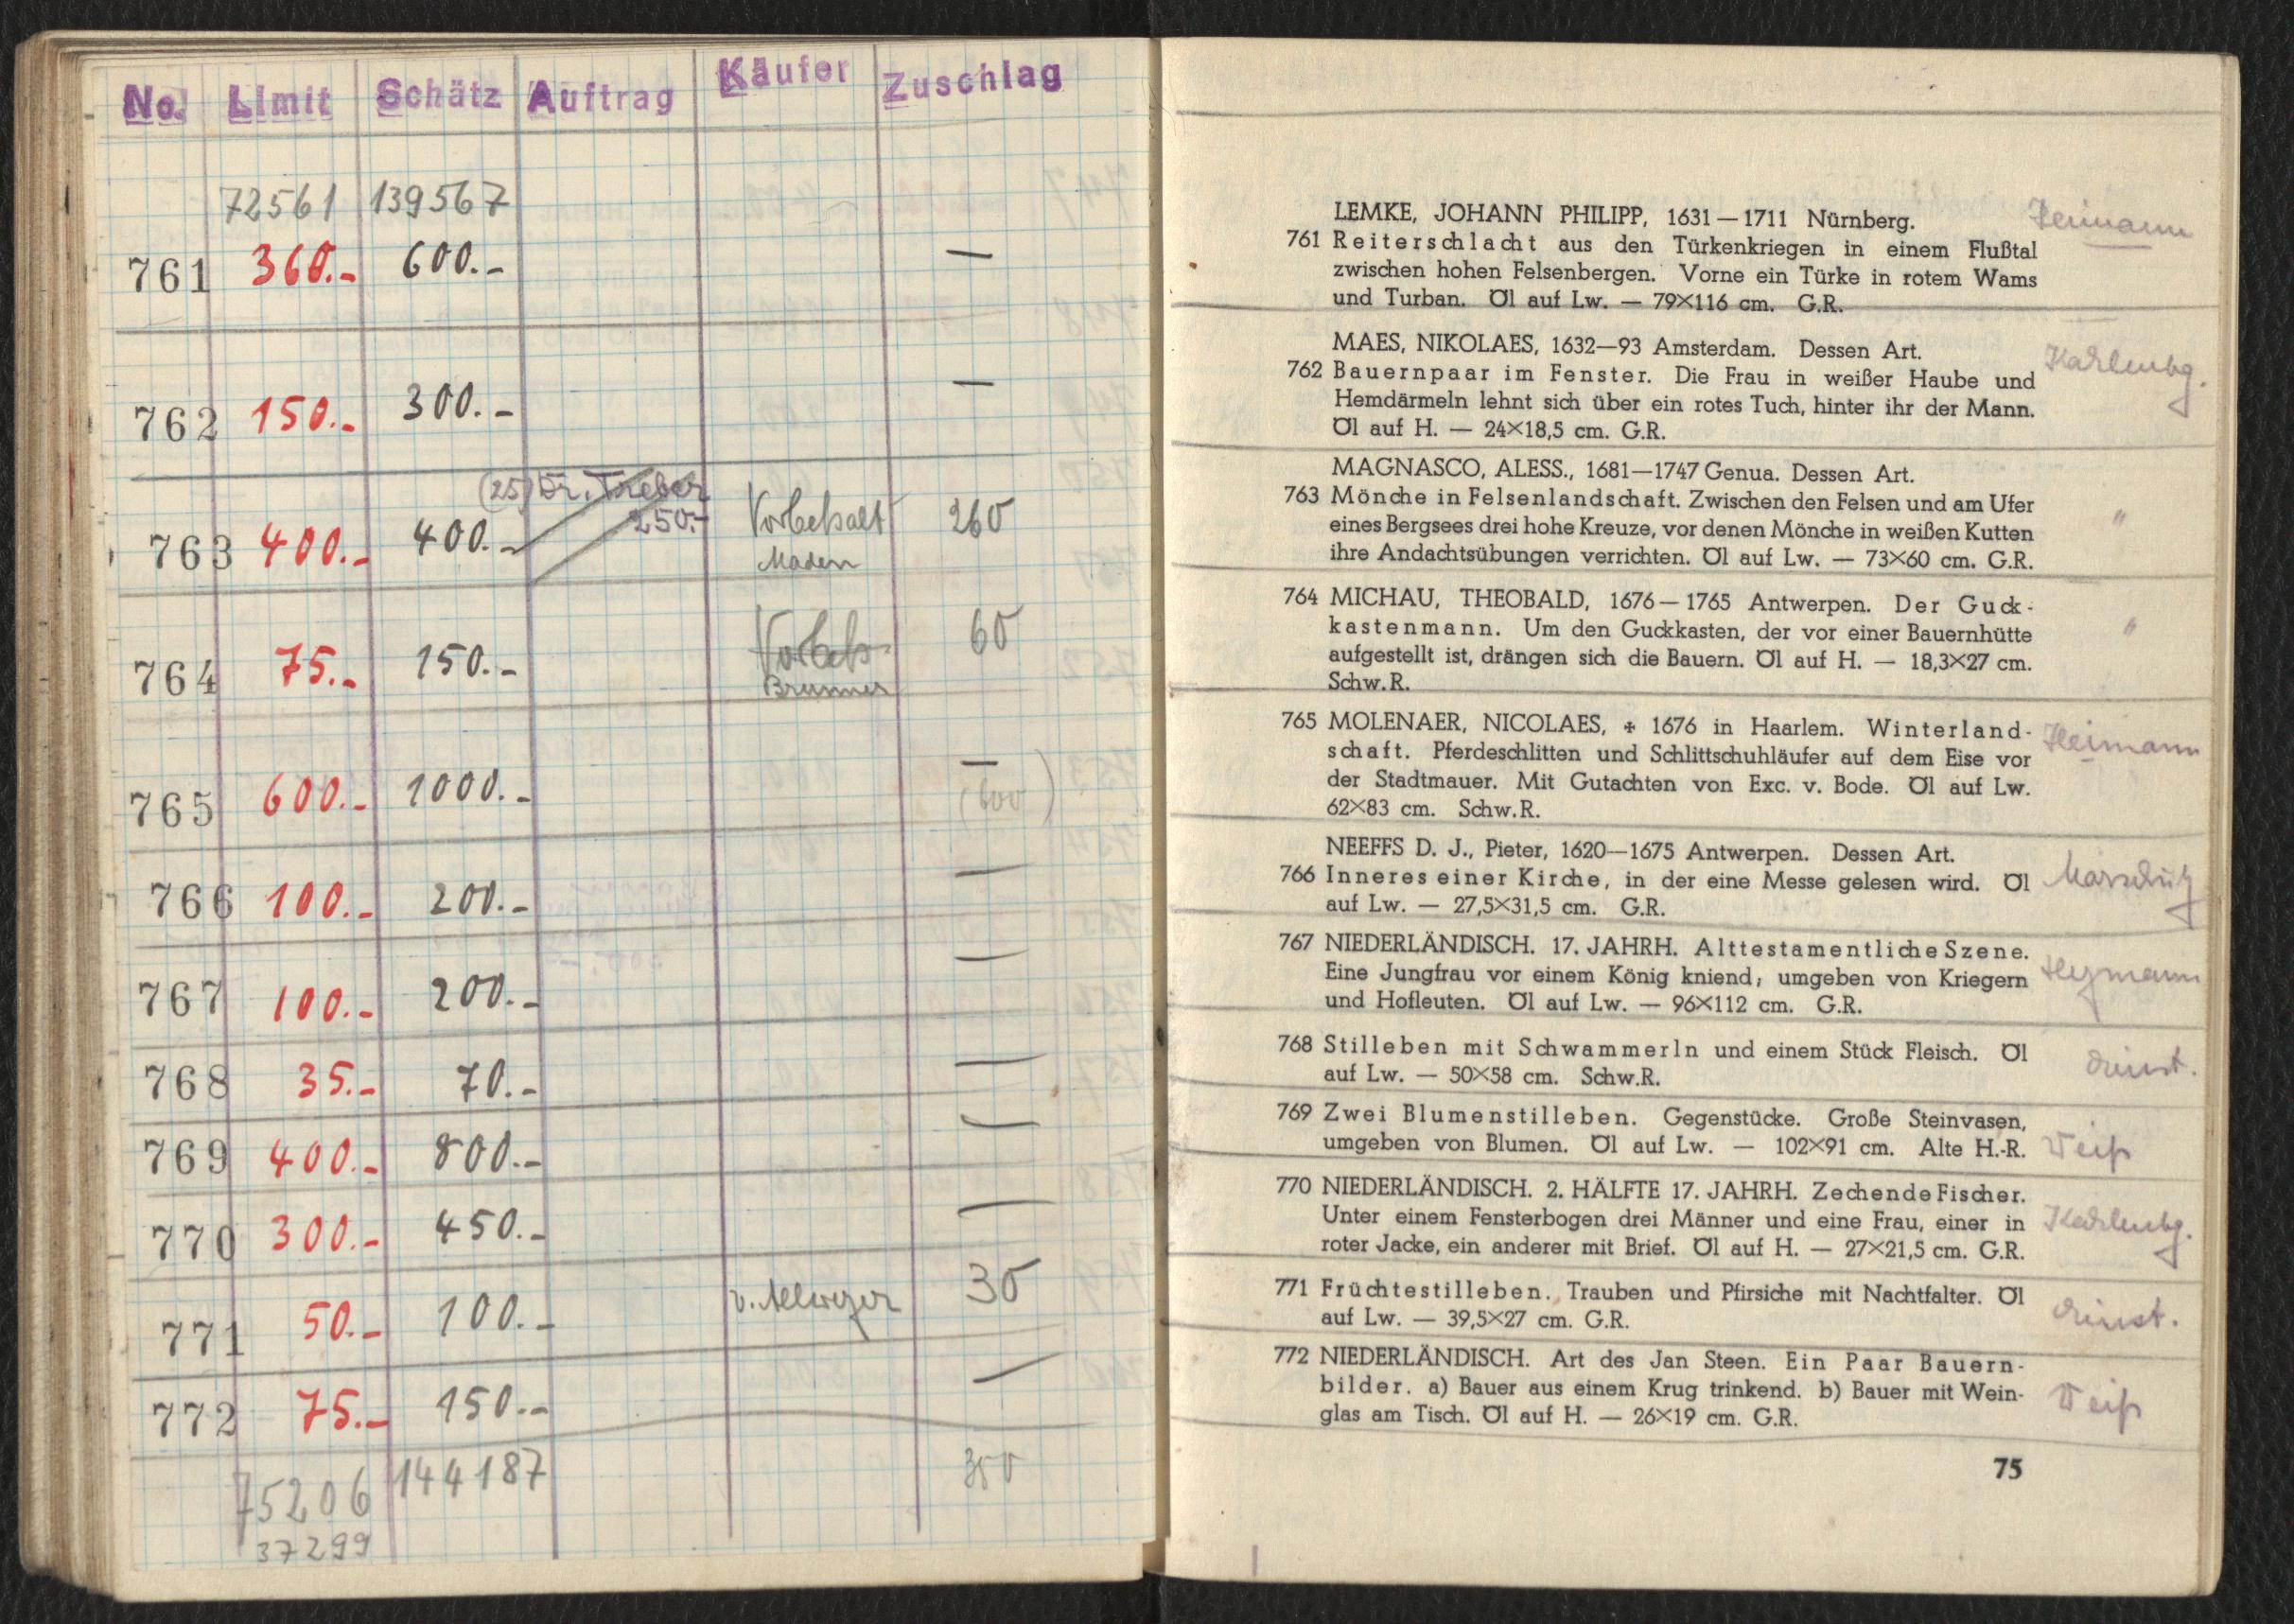 No. Limit Schätz Auftrag Käufer Zuschlag
72561 139567
761 360.- 600.- —
762 150.- 300.- —
763 400.- 400.- (25) Dr. Treber 250.- Vorbehalt 260
Maden
764 75.- 150.- Vorbeh 60
Brunner
765 600.- 1000.- —
(600)
766 100.- 200.- —
767 100.- 200.- —
768 35.- 70.- —
769 400.- 800.- —
770 300.- 450.- —
771 50.- 100.- 30
772 75.- 150.- —
75206 144187 350
37299
LEMKE, JOHANN PHILIPP, 1631—1711 Nürnberg. Heimann
761 Reiterschlacht aus den Türkenkriegen in einem Flußtal
zwischen hohen Felsenbergen. Vorne ein Türke in rotem Wams
und Turban. Öl auf Lw. — 79×116 cm. G.R.
MAES, NIKOLAES, 1632—93 Amsterdam. Dessen Art.
762 Bauernpaar im Fenster. Die Frau in weißer Haube und
Hemdärmeln lehnt sich über ein rotes Tuch, hinter ihr der Mann.
Öl auf H. — 24×18,5 cm. G.R.
MAGNASCO, ALESS., 1681—1747 Genua. Dessen Art.
763 Mönche in Felsenlandschaft. Zwischen den Felsen und am Ufer
eines Bergsees drei hohe Kreuze, vor denen Mönche in weißen Kutten "
ihre Andachtsübungen verrichten. Öl auf Lw. — 73×60 cm. G.R.
764 MICHAU, THEOBALD, 1676—1765 Antwerpen. Der Guck-
kastenmann. Um den Guckkasten, der vor einer Bauernhütte "
aufgestellt ist, drängen sich die Bauern. Öl auf H. — 18,3×27 cm.
Schw.R.
765 MOLENAER, NICOLAES, + 1676 in Haarlem. Winterland- Heimann
schaft. Pferdeschlitten und Schlittschuhläufer auf dem Eise vor
der Stadtmauer. Mit Gutachten von Exc. v. Bode. Öl auf Lw.
62×83 cm. Schw.R.
NEEFFS D. J., Pieter, 1620—1675 Antwerpen. Dessen Art.
766 Inneres einer Kirche, in der eine Messe gelesen wird. Öl
auf Lw. — 27,5×31,5 cm. G.R.
767 NIEDERLÄNDISCH. 17. JAHRH. Alttestamentliche Szene.
Eine Jungfrau vor einem König kniend, umgeben von Kriegern Heymann
und Hofleuten. Öl auf Lw. — 96×112 cm. G.R.
768 Stilleben mit Schwammerln und einem Stück Fleisch. Öl
auf Lw. — 50×58 cm. Schw.R.
769 Zwei Blumenstilleben. Gegenstücke. Große Steinvasen,
umgeben von Blumen. Öl auf Lw. — 102×91 cm. Alte H.-R. Weiß
770 NIEDERLÄNDISCH. 2. HÄLFTE 17. JAHRH. Zechende Fischer.
Unter einem Fensterbogen drei Männer und eine Frau, einer in
roter Jacke, ein anderer mit Brief. Öl auf H. — 27×21,5 cm. G.R.
771 Früchtestilleben. Trauben und Pfirsiche mit Nachtfalter. Öl
auf Lw. — 39,5×27 cm. G.R.
772 NIEDERLÄNDISCH. Art des Jan Steen. Ein Paar Bauern-
bilder. a) Bauer aus einem Krug trinkend. b) Bauer mit Wein- Weiß
glas am Tisch. Öl auf H. — 26×19 cm. G.R.
75